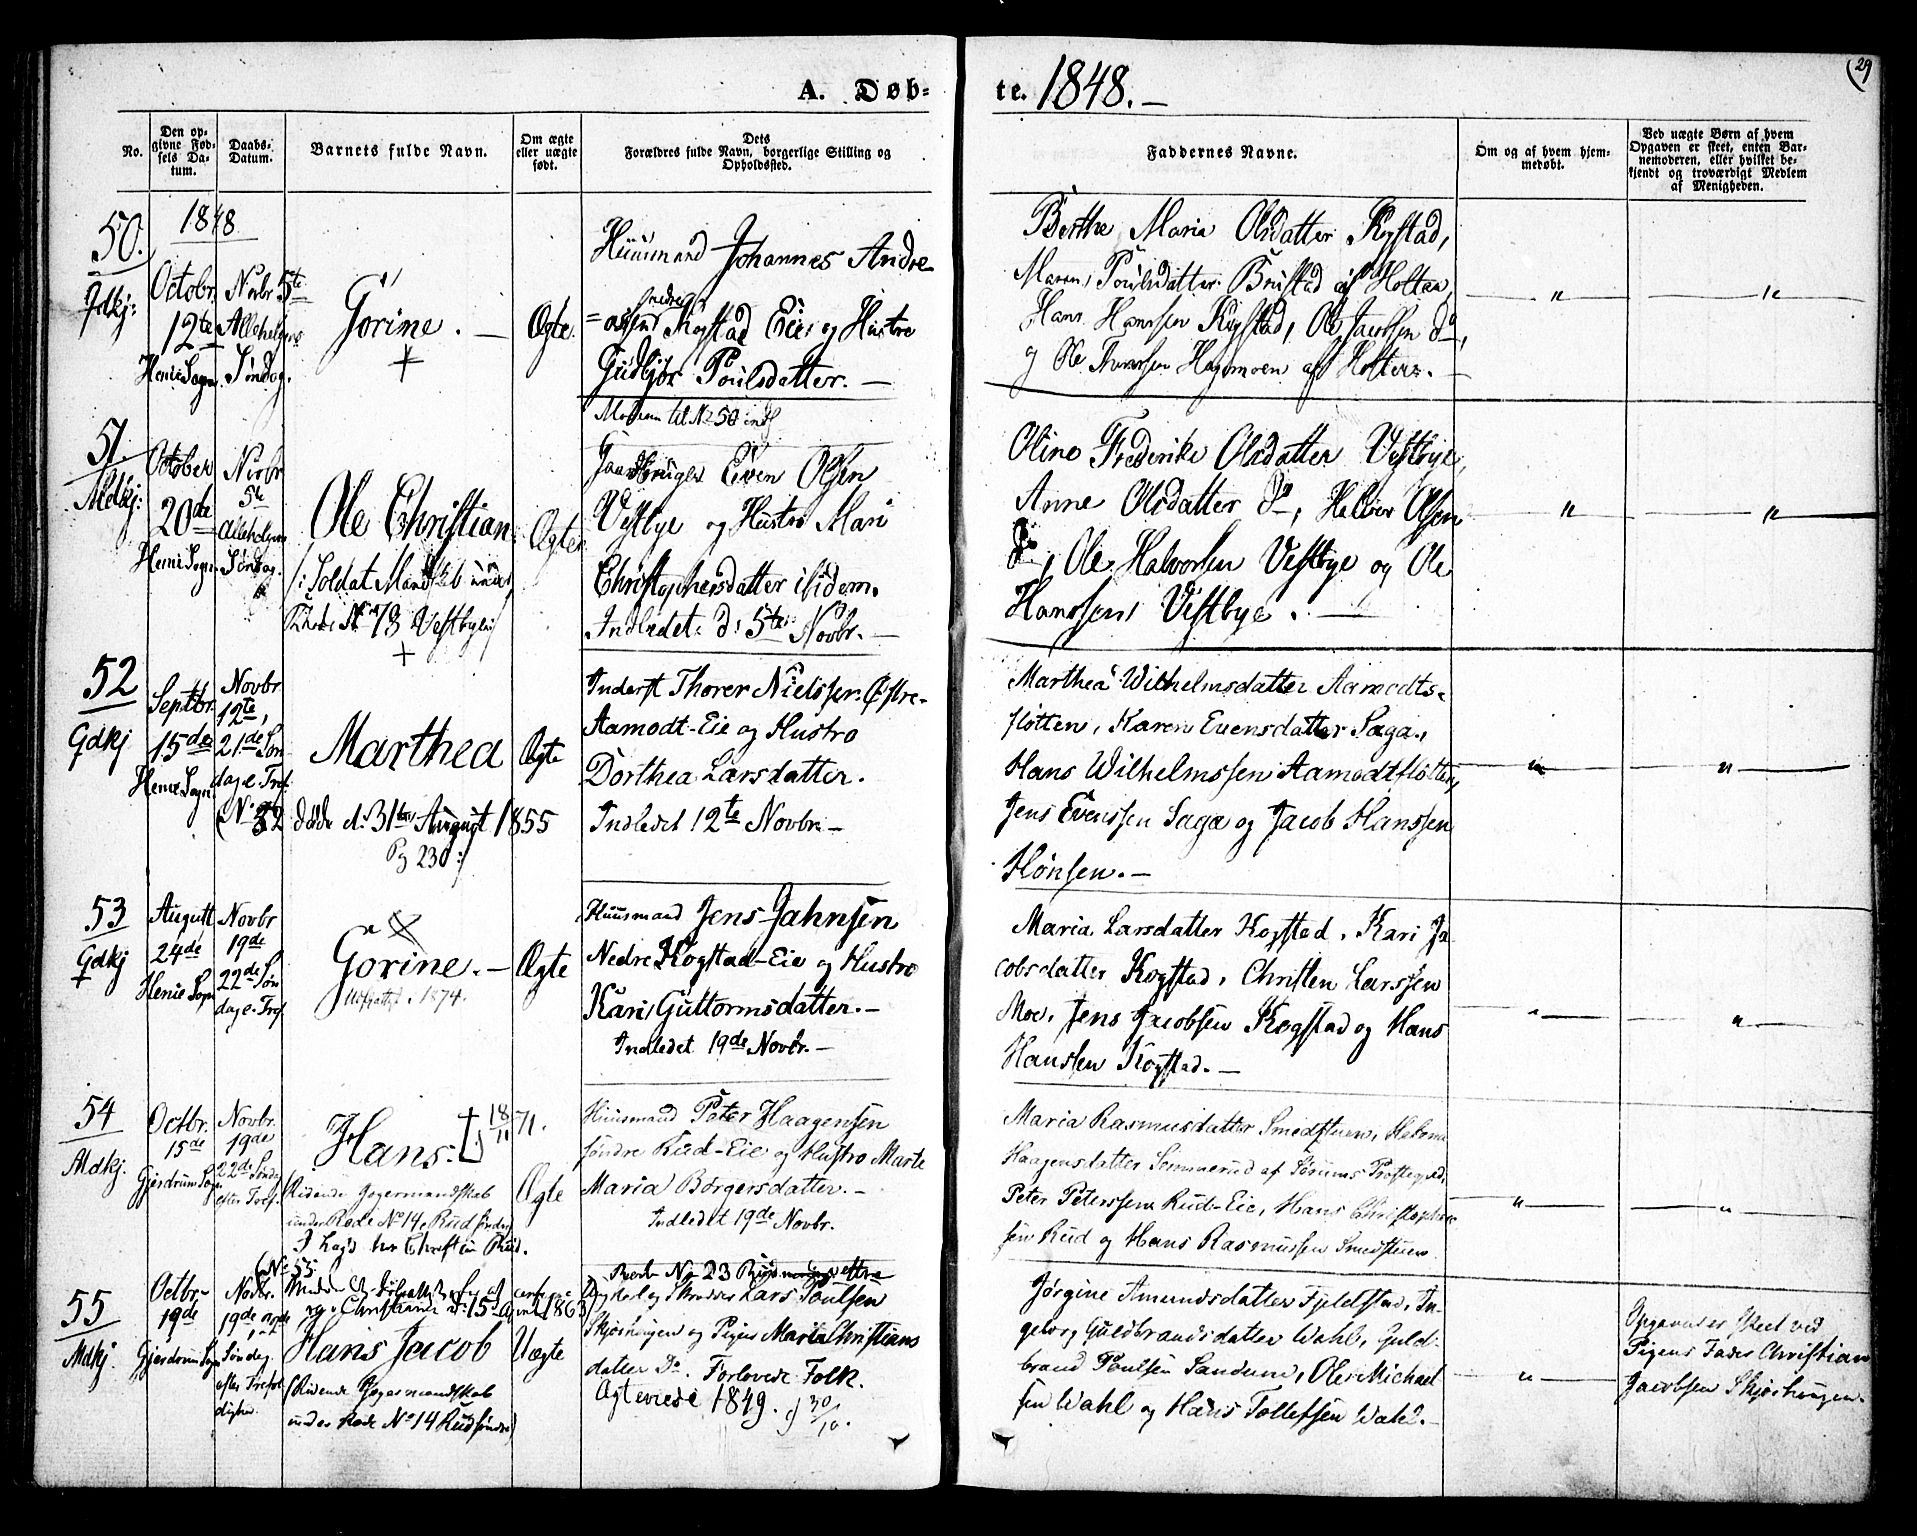 A. Døb-
te. 1848.
29
No.
Den op-
givne Fød-
sels Da-
tum.
Daabs-
Datum.
Barnets fulde Navn.
Om ægte
eller uægte
født.
Dets
Forældres fulde Navn, borgerlige Stilling og
Opholdssted.
Faddernes Navne.
Om og af hvem hjem-
medøbt.
Ved uægte Børn af hvem
Opgaven er skeet, enten Bar-
nemoderen, eller hvilket be-
kjendt og troværdigt Medlem
af Menigheden.
50.
Gdkj:
1848
Octobr.
12te
Henie Sogn.
Novbr 5te
Allehelgens
Søndag.
Gorine. —
Ægte.
Huusmand Johannes Andre-
assen Kogstad Eie og Hustro
Gudbjør Poulsdatter. —
Moderen til No 50 indl
Berthe Maria Olsdatter Kogstad,
Maren Poulsdatter Brustad af Holtan,
Hans Hanssen Kogstad, Ole Jacobsen do,
og Ole Thorssen Hagemoen af Holter. —
51.
Mdkj:
October
20de
Henie Sogn.
Novbr
5te
Allehelgens
Søndag.
Ole Christian.
/: Soldat Mandskab under
Rode No 73 Vestbye:/
Ægte
Gaardbruger Even Olsen
Vestbye og Hustro Mari
Christophersdatter ibidem.
Indledet: d: 5te Novbr. —
Oline Frederike Olsdatter Vestbye,
Anne Olsdatter Do, Helver Olsen
Do, Ole Halvorsen Vestbye og Ole
Hanssen Vestbye. —
52
Gdkj
Septbr.
15de
Henie Sogn.
Novbr.
12te,
21de Søn
dag e. Tref.
Marthea
(No 32 døde d. 31te August 1855
Pg 230:/
Ægte
Inderst Thorer Nielssen Østre-
Aamodt-Eie og Hustro
Dorthea Larsdatter.
Indledet 12te Novbr. —
Marthea Wilhelmsdatter Aamodts-
fløtten, Karen Evensdatter Saga.,
Hans Wilhelmssen Aamodtfløtten,
Jens Evenssen Saga og Jacob Hanssen
Hønsen. —
53
Gdkj
August
24de
Henie Sogn
Novbr
19de
22de Søn
dag e. Tref.
Gorine. —
Udflyttet 1874.
Ægte
Huusmand Jens Jahnsen
Nedre Kogstad-Eie og Hustro
Kari Guttormsdatter. —
Indledet 19de Novbr. —
Maria Larsdatter Kogstad, Kari Ja
cobsdatter Kogstad, Christen Larssen
Moe, Jens Jacobsen Kogstad og Hans
Hanssen Kogstad. —
54
Mdkj.
Octbr.
15de
Gjerdrum Sogn
Novbr.
19de
22de Sønda
efter Tref.
Hans. 18/11 71.
(Ridende Jægermandskab
under Rode No 14, Rud søndre)
I Lagd har Christen Rud.
Ægte
Huusmand Peter Haagensen
søndre Rud-Eie og Hustro Marte
Maria Borgersdatter. —
Indledet 19de Novbr.
Maria Rasmusdatter Smedstuen, Helene
Haagensdatter Sommerud af Sørums Prestegjeld,
Peter Peterssen Rud-Eie, Hans Christopher
sen Rud og Hans Rasmussen Smedstuen
55
Mdkj.
Octbr.
19de
Gjerdrum Sogn
Novbr.
19de
Søndag
efter Trefol
dighed.
(No 55
Christiania d: 15 April 1863
Hans Jacob
(Ridende Jægermandskab
under Rode No 14 Rud søndre)
Uægte
Rode No 23 Rud
Ungkarl og Skrædder Lars Poulsen
Skjøshaugen og Pigen Maria Christians
datter Do. Forlovede Folk.
Ægteviede 1849. 30/10.
Jørgine Amundsdatter Fjeldstad, In
geborg Guldbrandsdatter Wahl, Guld-
brand Poulsen Sandum, Ole Michael
sen Wahl og Hans Tollefsen Wahl. —
Opgaven er skeet ved
Pigens Fader Christian
Jacobsen Skjøshaugen.